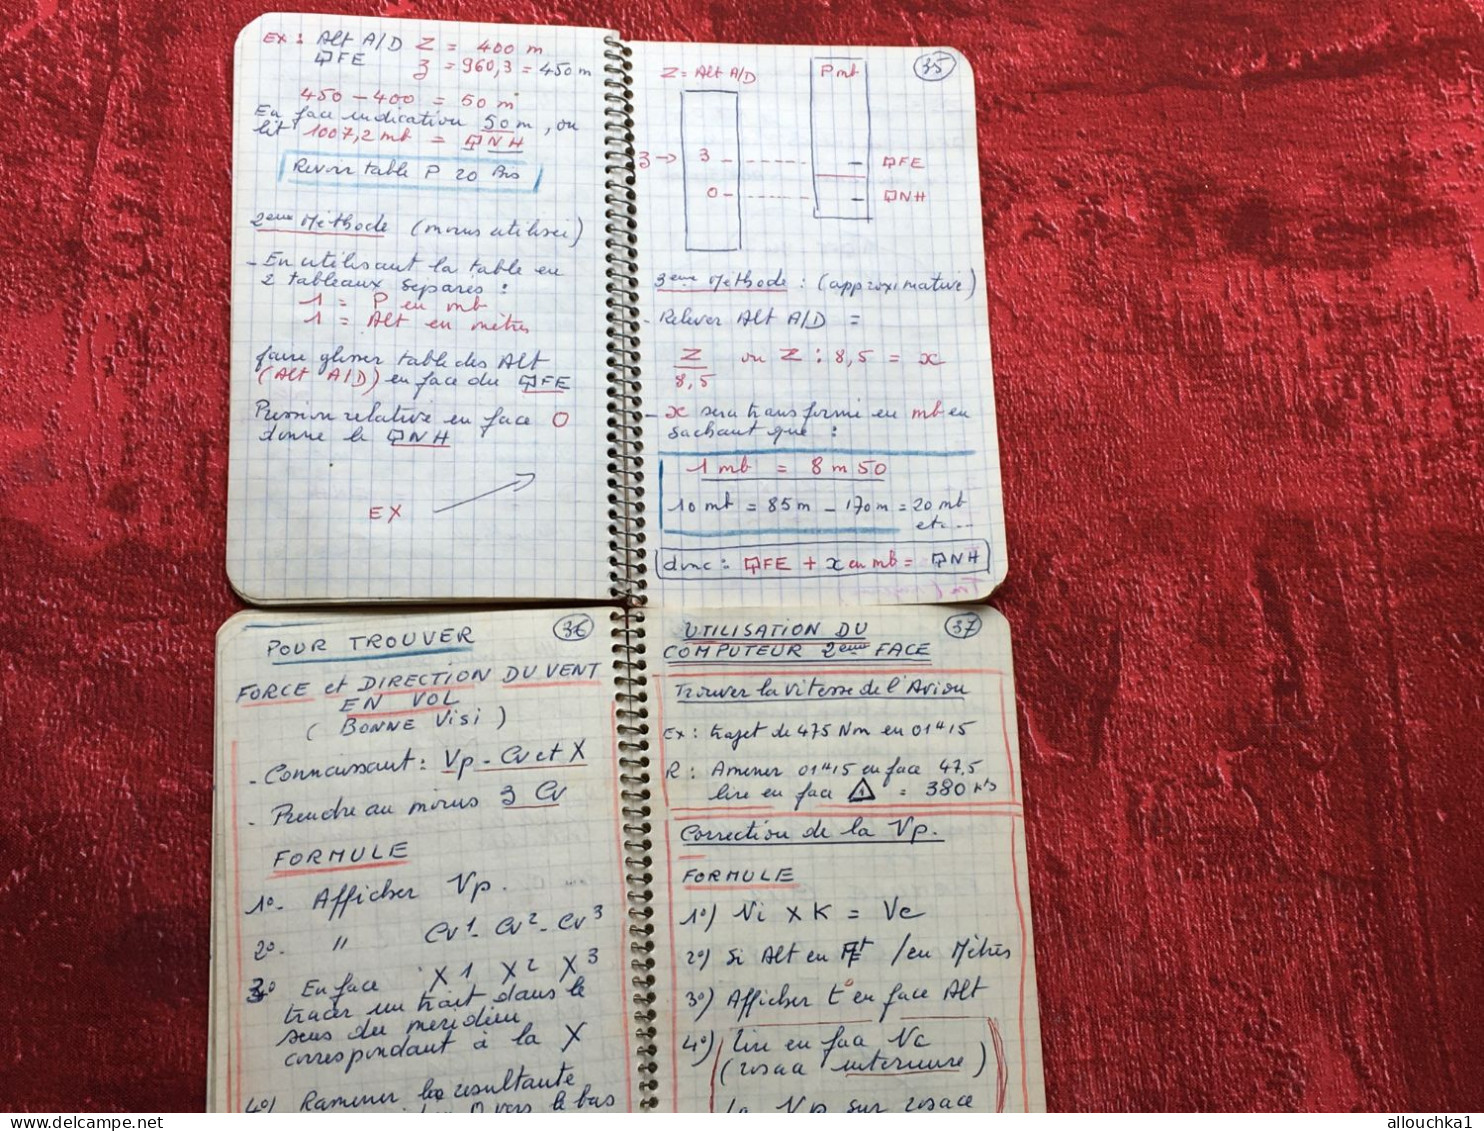 EX : Alt A/D Z = 400 m
QFE 3 = 960,3 = 450 m
450 - 400 = 50 m
En face indication 50 m, on
lit 1007,2 mb = QNH
Revoir table P 20 Bis
2ème Méthode (moins utilisée)
- En utilisant la table en
2 tableaux séparés :
1 = P en mb
1 = Alt en mètres
faire glisser table des Alt
(Alt A/D) en face du QFE
Pression relative en face 0
donne le QNH
EX
35
Z = Alt A/D P mb
3 → 3 - ------ - QFE
0 - ------ - QNH
3ème Méthode : (approximative)
- Relever Alt A/D =
Z/8,5 ou Z : 8,5 = x
- x sera transformé en mb en
sachant que :
1 mb = 8 m 50
10 mb = 85 m - 170 m = 20 mb
etc...
donc : QFE + x en mb = QNH
36
POUR TROUVER
FORCE et DIRECTION DU VENT
EN VOL
( BONNE Visi )
- Connaissant : Vp - Cv et X
- Prendre au moins 3 Cv
FORMULE
1°- Afficher Vp.
2°- " Cv1 - Cv2 - Cv3
3° En face X1 X2 X3
tracer un trait dans le
sens du méridien
correspondant à la X
4°) Ramener la résultante
0 vers le bas
37
UTILISATION DU
COMPUTEUR 2ème FACE
Trouver la vitesse de l'Avion
Ex : trajet de 475 Nm en 01H15
R : Amener 01H15 en face 47,5
lire en face △ = 380 kts
Correction de la Vp.
FORMULE
1°) Vi x K = Vc
2°) Si Alt en Ft / en Mètres
3°) Afficher t° en face Alt
4°) lire en face Vc
(rosace intérieure)
la Vp sur rosace
allouchka1